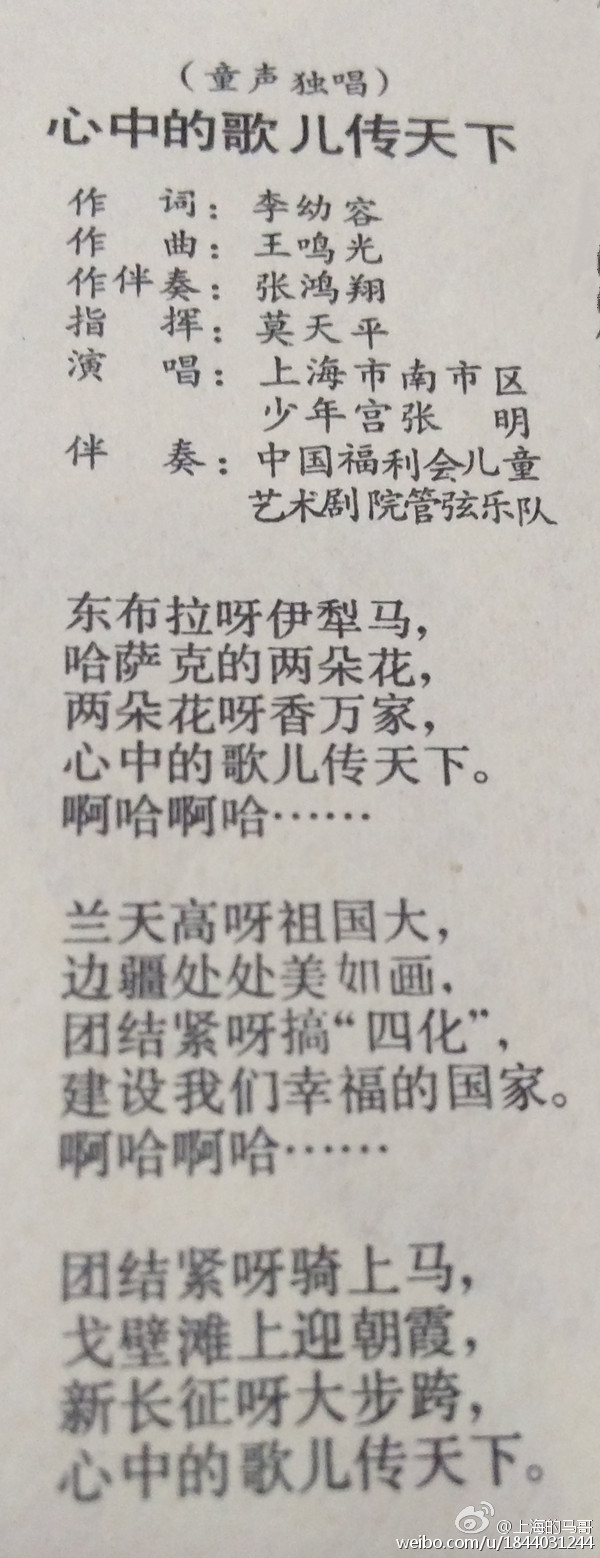 （童声独唱）
心中的歌儿传天下
作　词：李幼容
作　曲：王鸣光
作伴奏：张鸿翔
指　挥：莫天平
演　唱：上海市南市区
少年宫张　明
伴　奏：中国福利会儿童
艺术剧院管弦乐队
东布拉呀伊犁马，
哈萨克的两朵花，
两朵花呀香万家，
心中的歌儿传天下。
啊哈啊哈……
兰天高呀祖国大，
边疆处处美如画，
团结紧呀搞“四化”，
建设我们幸福的国家。
啊哈啊哈……
团结紧呀骑上马，
戈壁滩上迎朝霞，
新长征呀大步跨，
心中的歌儿传天下。
@上海的马哥
weibo.com/u/1844031244